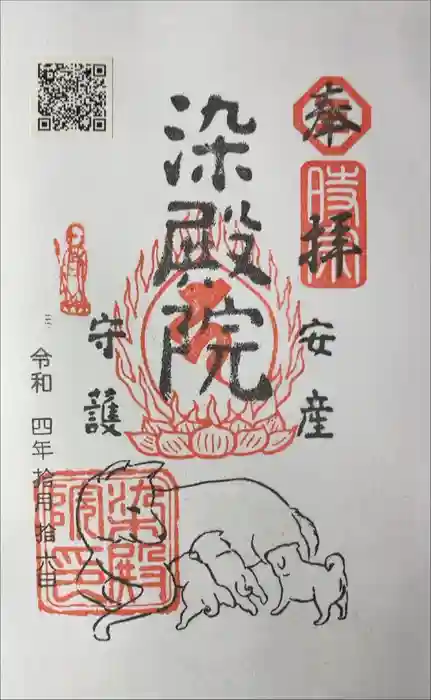 奉拝
時宗
安産
染殿院
守護
令和 四年 拾月 拾六日
染殿
院印